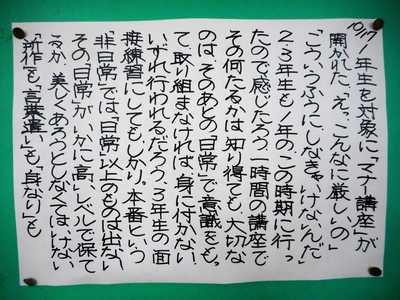 10/17 1年生を対象に「マナー講座」が
開かれた。「えっ、こんなに厳しいの」
「こういうふうにしなきゃいけないんだ」
2・3年生も1年のこの時期に行っ
たので感じたろう。一時間の講座で
その何たるかは知り得ても、大切な
のは、そのあとの「日常」で意識をもっ
て取り組まなければ、身に付かない。
いずれ行われるだろう、3年生の面
接練習にしてもしかり。本番という
「非日常」では「日常」以上のものは出ない。
その「日常」がいかに高いレベルで保て
るか。美しくあろうとしなくてはいけない。
「所作」も「言葉遣い」も「身なり」も